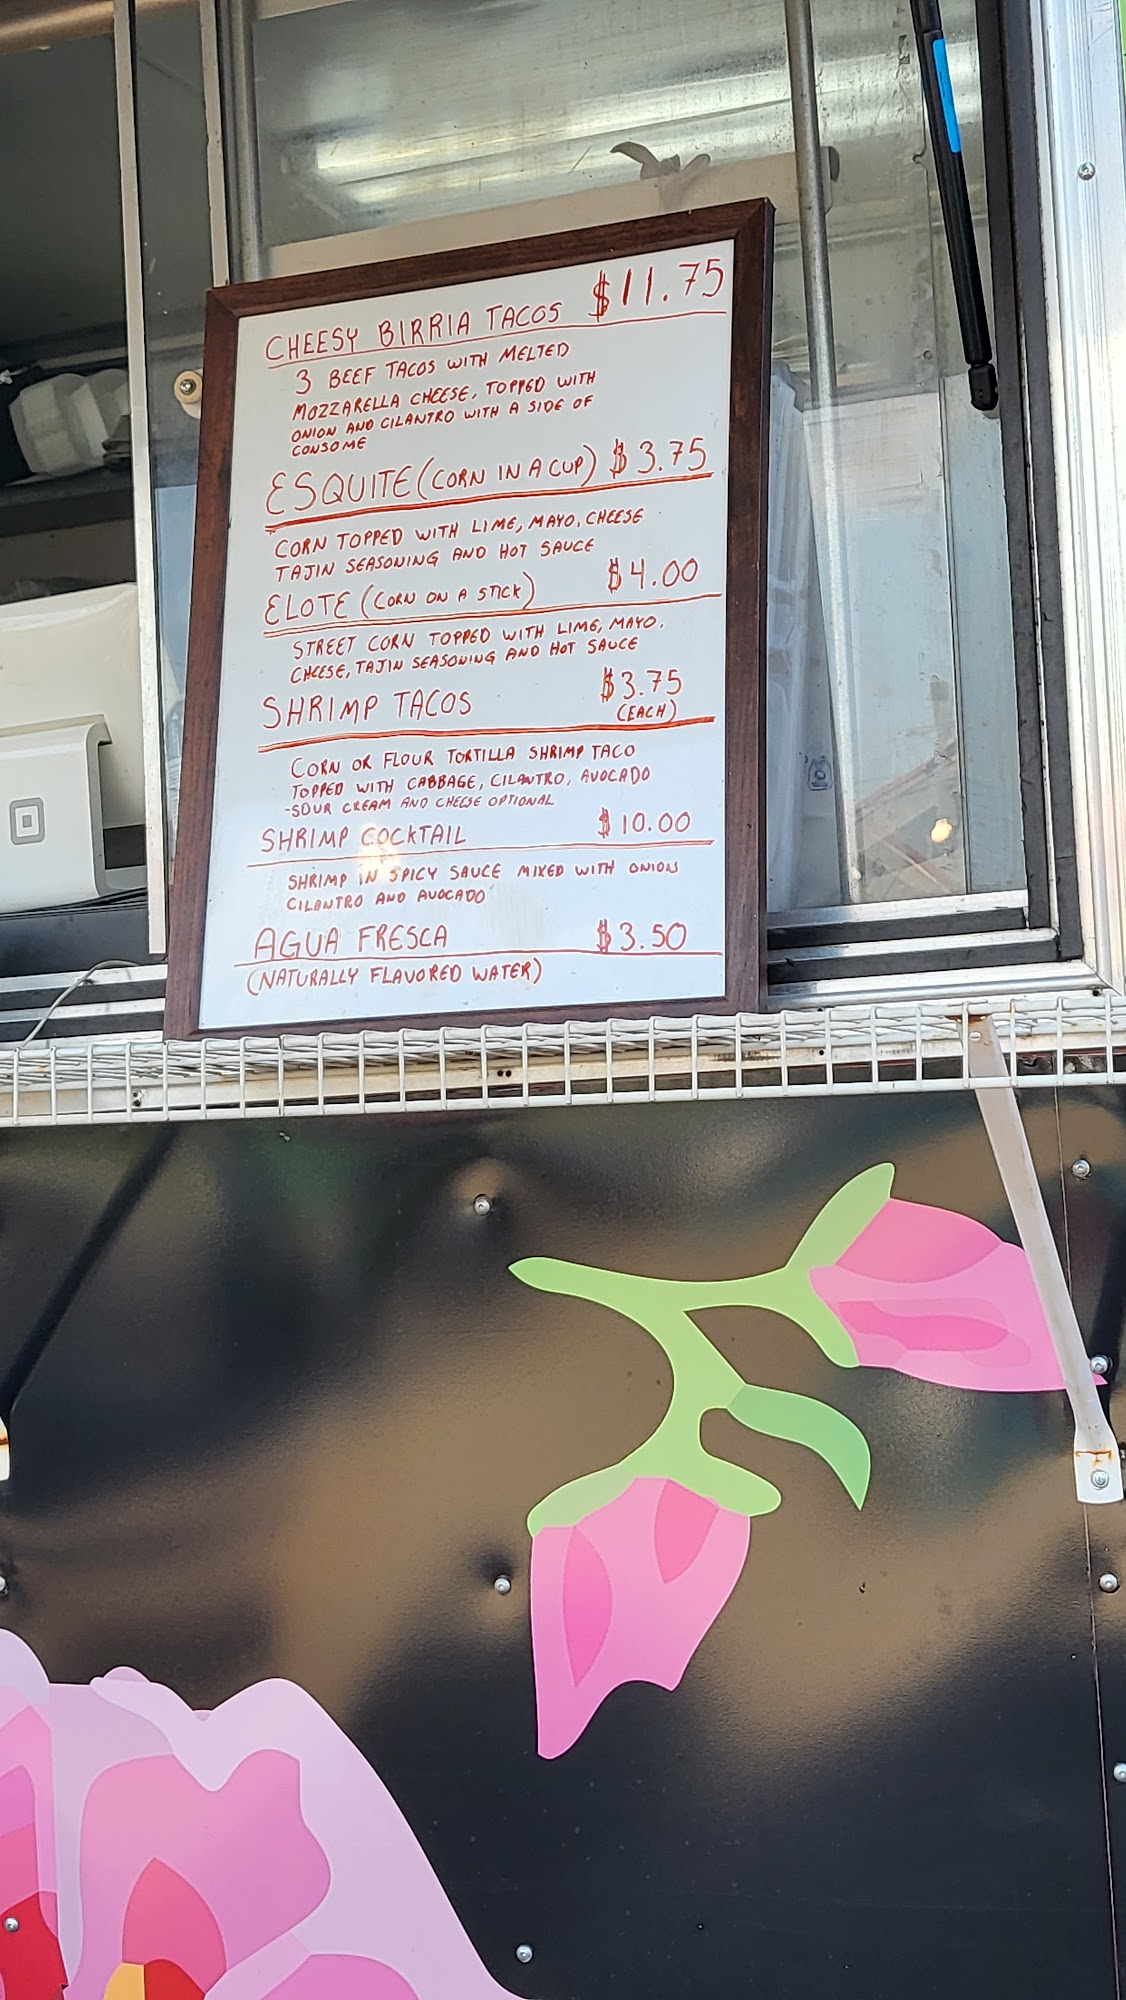 CHEESY BIRRIA TACOS $11.75
3 BEEF TACOS WITH MELTED
MOZZARELLA CHEESE, TOPPED WITH
ONION AND CILANTRO WITH A SIDE OF
CONSOME
ESQUITE (CORN IN A CUP) $3.75
CORN TOPPED WITH LIME, MAYO, CHEESE
TAJIN SEASONING AND HOT SAUCE
ELOTE (CORN ON A STICK) $4.00
STREET CORN TOPPED WITH LIME, MAYO,
CHEESE, TAJIN SEASONING AND HOT SAUCE
SHRIMP TACOS $3.75
(EACH)
CORN OR FLOUR TORTILLA SHRIMP TACO
TOPPED WITH CABBAGE, CILANTRO, AVOCADO
-SOUR CREAM AND CHEESE OPTIONAL
SHRIMP COCKTAIL $10.00
SHRIMP IN SPICY SAUCE MIXED WITH ONIONS
CILANTRO AND AVOCADO
AGUA FRESCA $3.50
(NATURALLY FLAVORED WATER)